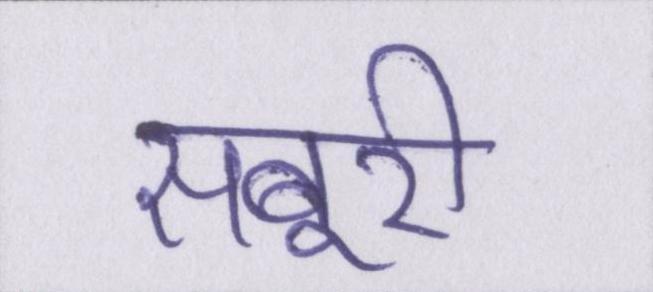 सबूरी